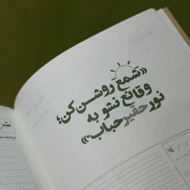 «شمع روشن کن؛
و قانع نشو به
نور حقیر حباب.»